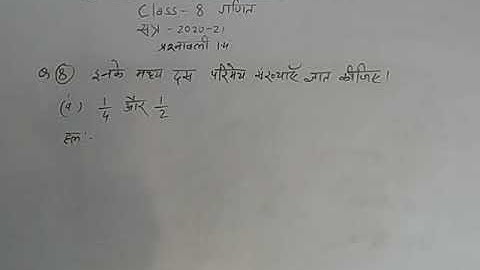 Class- 8 गणित
सत्र - 2020-21
प्रश्नावली 1.4
Q ⑧ इनके मध्य दस परिमेय संख्याएँ ज्ञात कीजिए।
(i) 1/4 और 1/2
हलः-